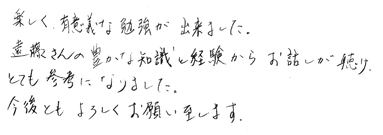 楽しく、有意義な勉強が出来ました。
遠藤さんの豊かな知識と経験からお話しが聴け、
とても参考になりました。
今後ともよろしくお願い至します。